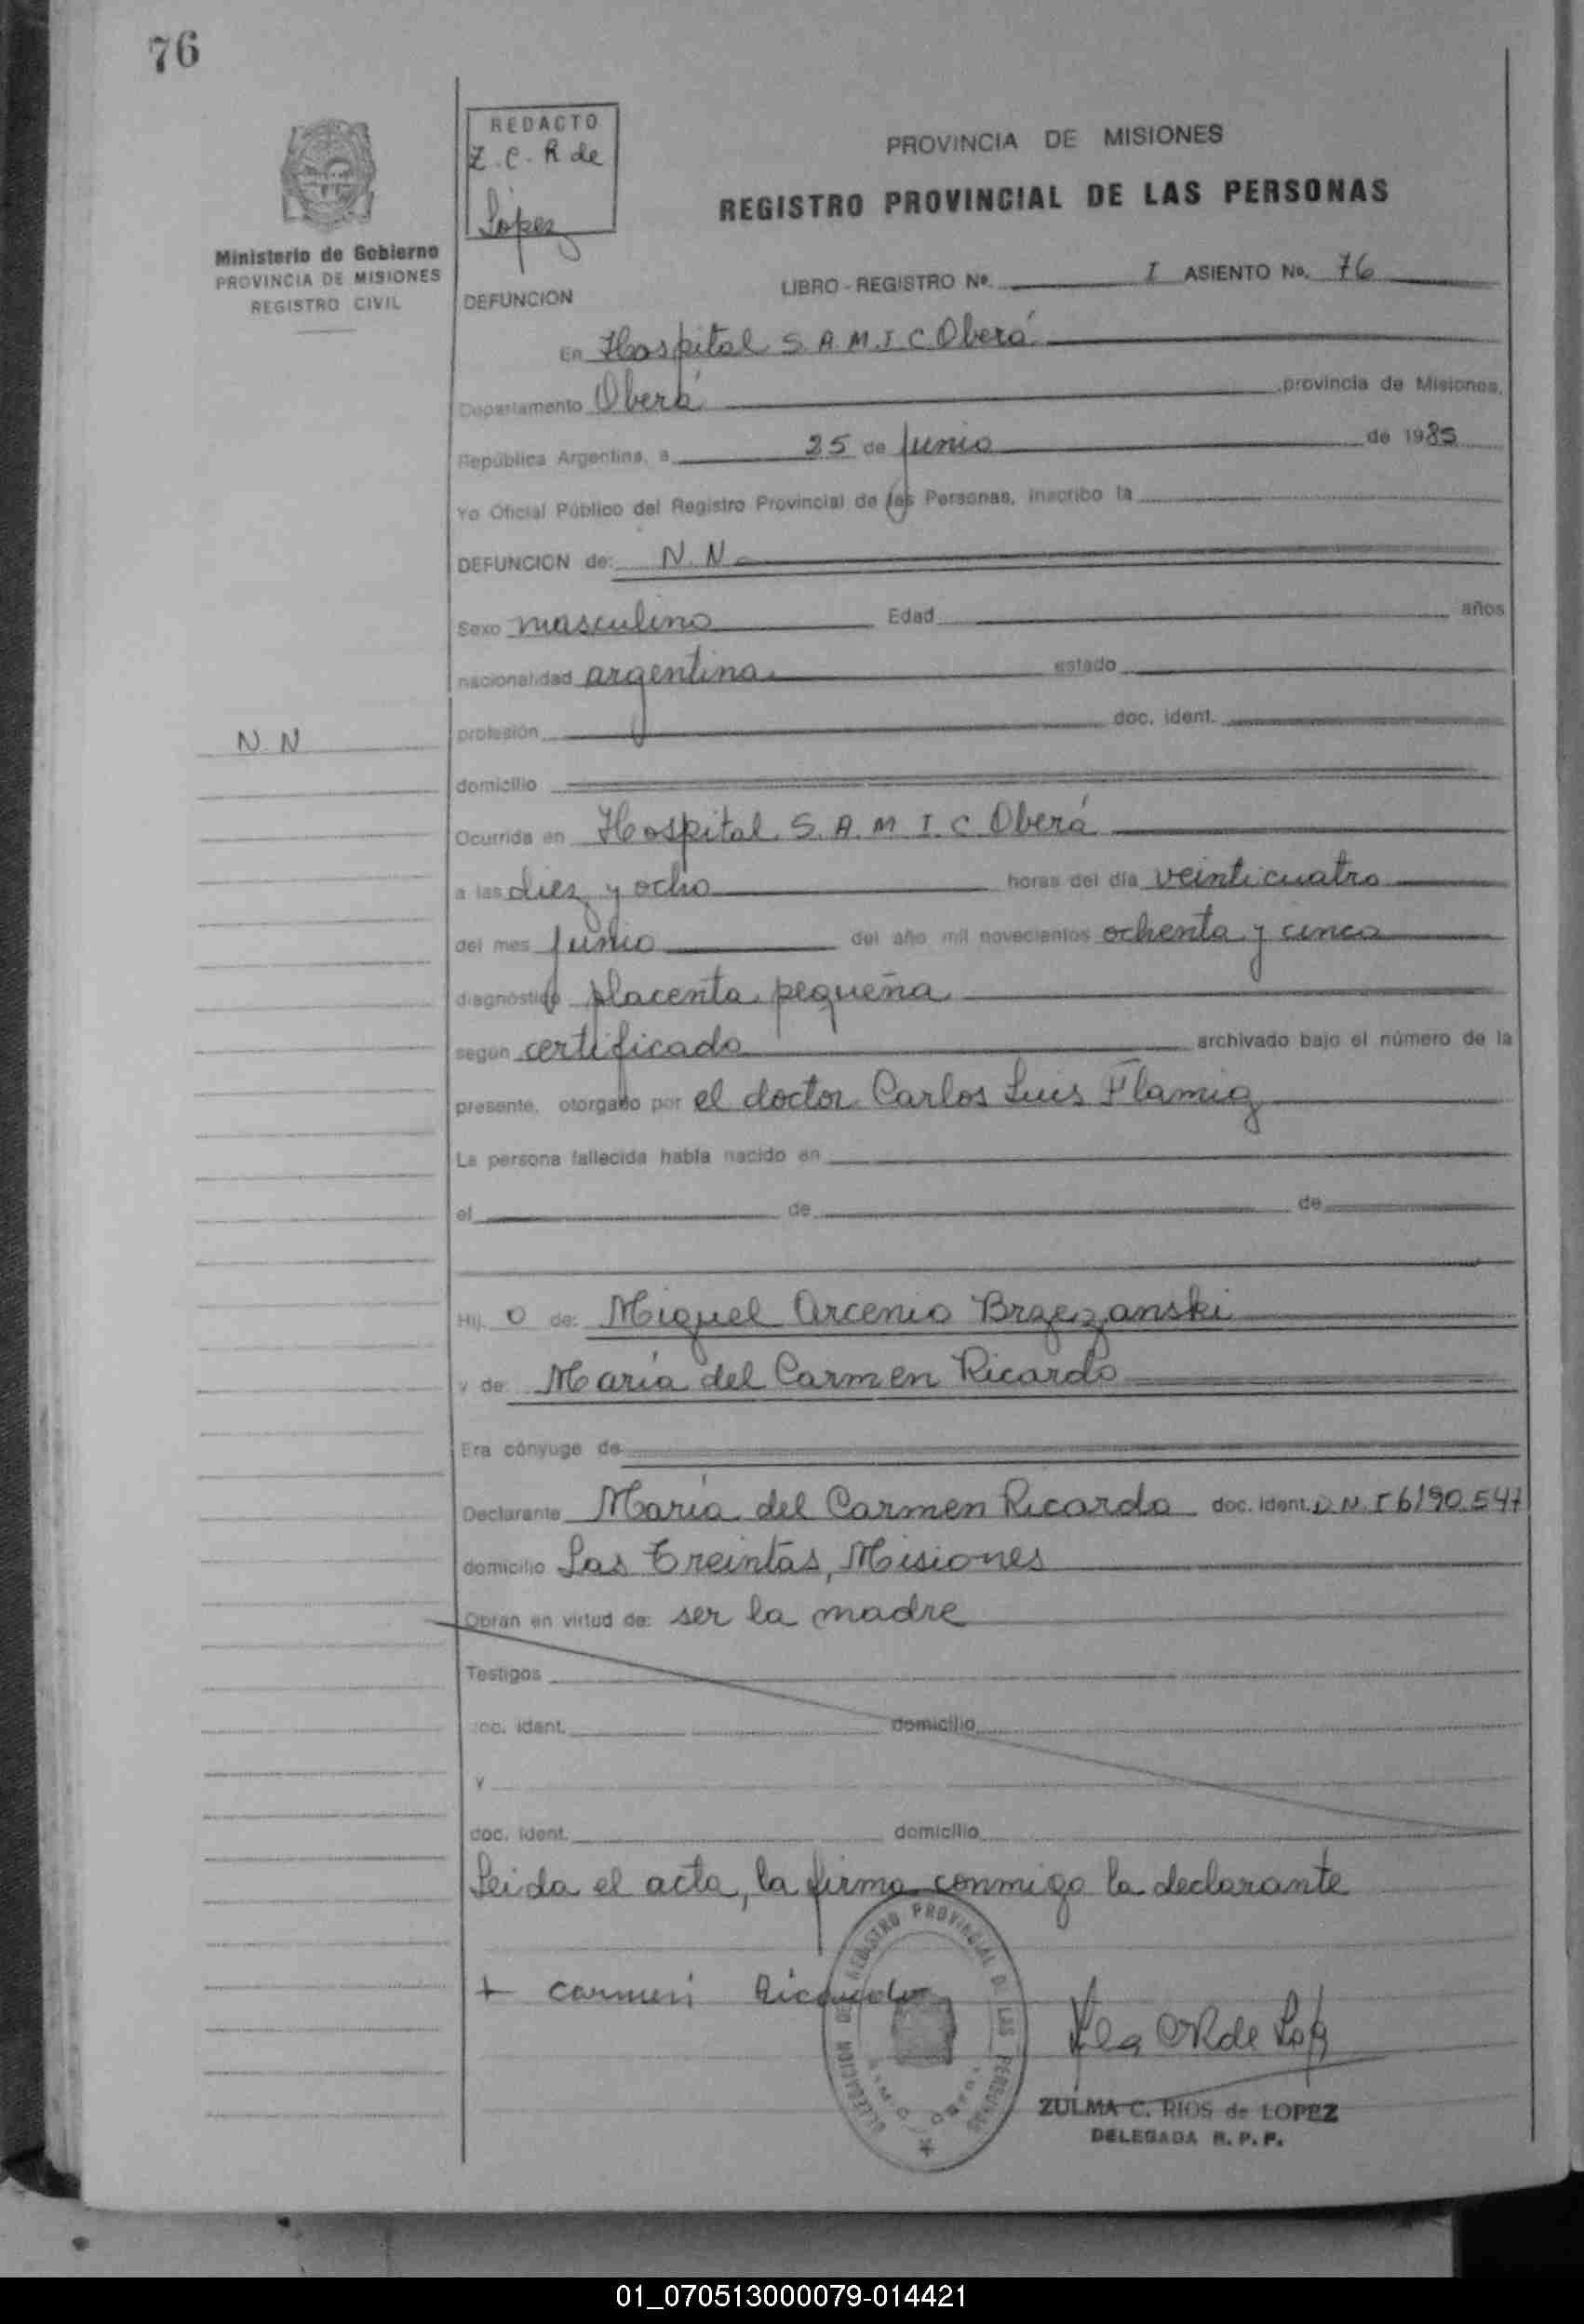 76
REDACTO
Z. C. R de
Lopez
Ministerio de Gobierno
PROVINCIA DE MISIONES
REGISTRO CIVIL
PROVINCIA DE MISIONES
REGISTRO PROVINCIAL DE LAS PERSONAS
DEFUNCION
LIBRO - REGISTRO Nº. I ASIENTO No. 76
En Hospital S. A. M. I. C Oberá
Departamento Oberá provincia de Misiones.
República Argentina, a 25 de Junio de 1985
Yo Oficial Público del Registro Provincial de las Personas, inscribo la
DEFUNCION de: N. N
Sexo masculino Edad años
nacionalidad argentina estado
N. N
profesión doc. ident.
domicilio
Ocurrida en Hospital S. A. M I. C Oberá
a las diez y ocho horas del día veinticuatro
del mes Junio del año mil novecientos ochenta y cinco
diagnóstico placenta pequeña
según certificado archivado bajo el número de la
presente, otorgado por el doctor Carlos Luis Flamig
La persona fallecida había nacido en
el de de
Hij o de: Miguel Arcenio Brzezanski
y de María del Carmen Ricardo
Era cónyuge de
Declarante María del Carmen Ricardo doc. ident. D N I 6190.547
domicilio Las Treintas, Misiones
Obran en virtud de: ser la madre
Testigos
doc. ident. domicilio
y
doc. ident. domicilio
Leida el acta, la firma conmigo la declarante
+ Carmen Ricardo
DELEGACION DEL REGISTRO PROVINCIAL D. LAS PERSONAS
ZULMA C. RIOS de LOPEZ
DELEGADA R. P. P.
01_070513000079-014421